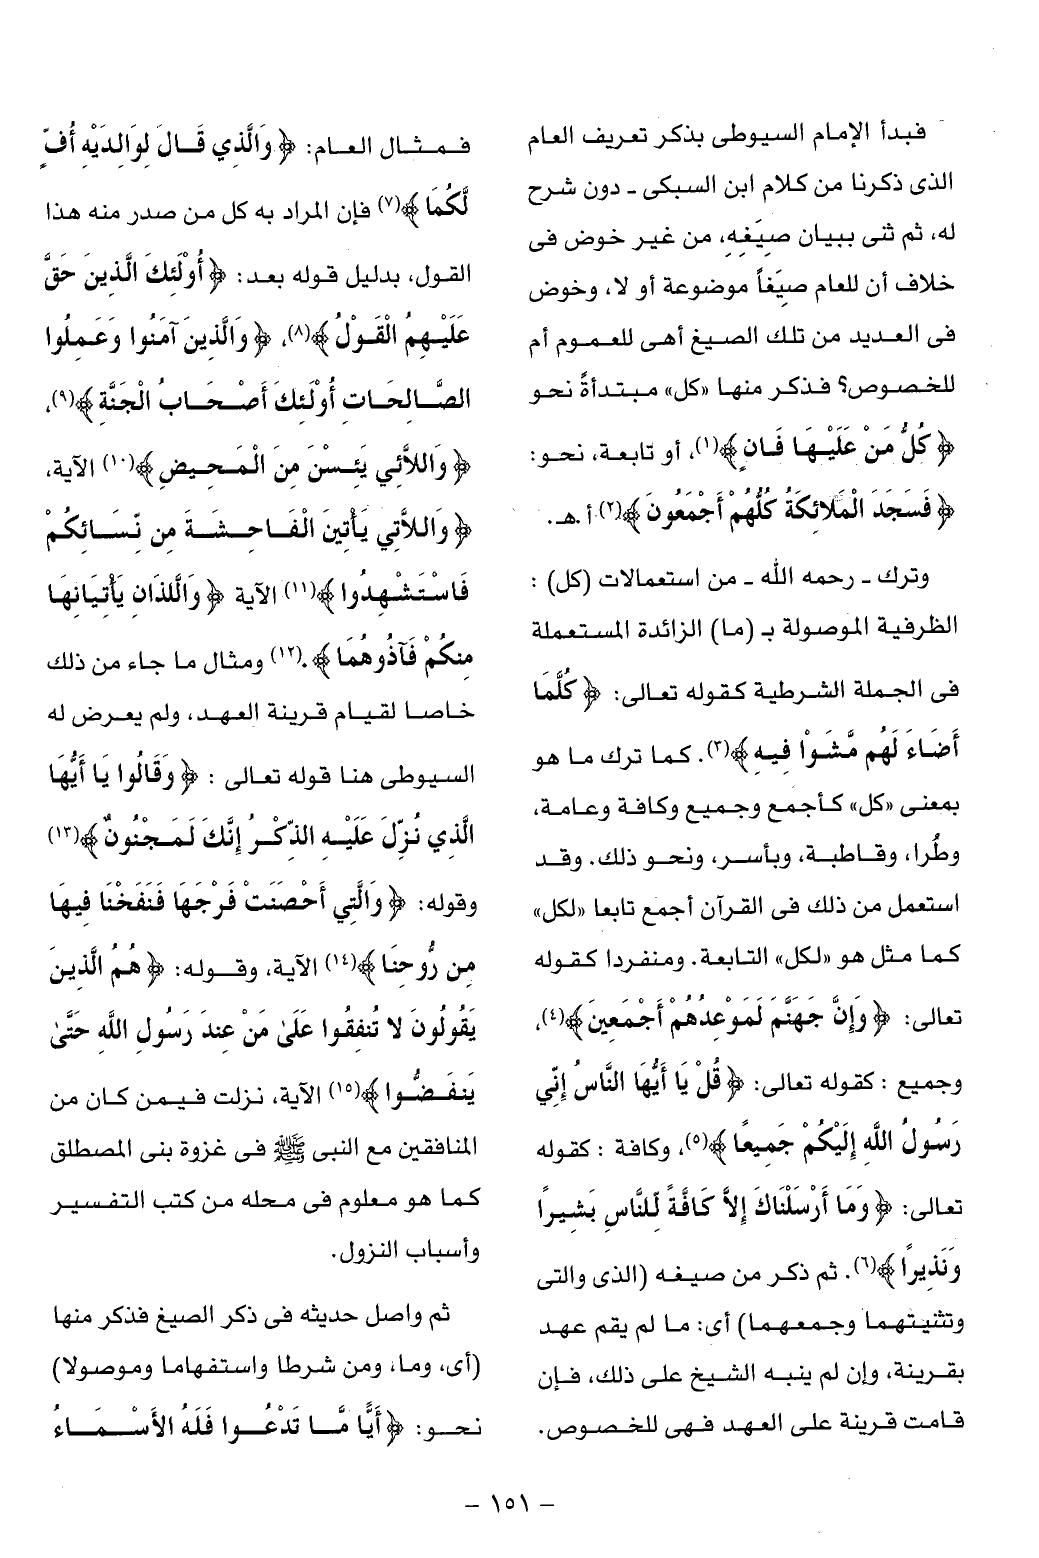 فبدأ الإمام السيوطى بذكر تعريف العام
الذى ذكرنا من كلام ابن السبكى ـ دون شرح
له، ثم ثنى ببيان صيَغِهِ، من غير خوض فى
خلاف أن للعام صيَغاً موضوعة أو لا، وخوض
فى العديد من تلك الصيغ أهى للعموم أم
للخصوص؟ فذكر منها «كل» مبتدأةً نحو
﴿ كُلُّ مَنْ عَلَيْهَا فَانٍ ﴾(١)، أو تابعة، نحو:
﴿ فَسَجَدَ الْمَلائِكَةُ كُلُّهُمْ أَجْمَعُونَ ﴾(٢) أ .هـ.
وترك ـ رحمه الله ـ من استعمالات (كل) :
الظرفية الموصولة بـ (ما) الزائدة المستعملة
فى الجملة الشرطية كقوله تعالى: ﴿ كُلَّمَا
أَضَاءَ لَهُم مَّشَوْا فِيهِ ﴾(٣). كما ترك ما هو
بمعنى «كل» كأجمع وجميع وكافة وعامة،
وطُرا، وقاطبة، وبأسر، ونحو ذلك. وقد
استعمل من ذلك فى القرآن أجمع تابعا «لكل»
كما مثل هو «لكل» التابعة. ومنفردا كقوله
تعالى: ﴿ وَإِنَّ جَهَنَّمَ لَمَوْعِدُهُمْ أَجْمَعِينَ ﴾(٤)،
وجميع : كقوله تعالى: ﴿ قُلْ يَا أَيُّهَا النَّاسُ إِنِّي
رَسُولُ اللَّهِ إِلَيْكُمْ جَمِيعًا ﴾(٥)، وكافة : كقوله
تعالى: ﴿ وَمَا أَرْسَلْنَاكَ إِلاَّ كَافَّةً لِّلنَّاسِ بَشِيرًا
وَنَذِيرًا ﴾(٦). ثم ذكر من صيغه (الذى والتى
وتثنيتهما وجمعهما) أى: ما لم يقم عهد
بقرينة، وإن لم ينبه الشيخ على ذلك، فإن
قامت قرينة على العهد فهى للخصوص.
فمثال العام: ﴿ وَالَّذِي قَالَ لِوَالِدَيْهِ أُفٍّ
لَّكُمَا ﴾(٧) فإن المراد به كل من صدر منه هذا
القول، بدليل قوله بعد: ﴿ أُوْلَئِكَ الَّذِينَ حَقَّ
عَلَيْهِمُ الْقَوْلُ ﴾(٨)، ﴿ وَالَّذِينَ آمَنُوا وَعَمِلُوا
الصَّالِحَاتِ أُوْلَئِكَ أَصْحَابُ الْجَنَّةِ ﴾(٩)،
﴿ وَاللاَّئِي يَئِسْنَ مِنَ الْمَحِيضِ ﴾(١٠) الآية،
﴿ وَاللاَّتِي يَأْتِينَ الْفَاحِشَةَ مِن نِّسَائِكُمْ
فَاسْتَشْهِدُوا ﴾(١١) الآية ﴿ وَالَّلذَانِ يَأْتِيَانِهَا
مِنكُمْ فَآذُوهُمَا ﴾.(١٢) ومثال ما جاء من ذلك
خاصا لقيام قرينة العهد، ولم يعرض له
السيوطى هنا قوله تعالى : ﴿ وَقَالُوا يَا أَيُّهَا
الَّذِي نُزِّلَ عَلَيْهِ الذِّكْرُ إِنَّكَ لَمَجْنُونٌ ﴾(١٣)
وقوله: ﴿ وَالَّتِي أَحْصَنَتْ فَرْجَهَا فَنَفَخْنَا فِيهَا
مِن رُّوحِنَا ﴾(١٤) الآية، وقوله: ﴿ هُمُ الَّذِينَ
يَقُولُونَ لا تُنفِقُوا عَلَىٰ مَنْ عِندَ رَسُولِ اللَّهِ حَتَّىٰ
يَنفَضُّوا ﴾(١٥) الآية، نزلت فيمن كان من
المنافقين مع النبى ﷺ فى غزوة بنى المصطلق
كما هو معلوم فى محله من كتب التفسير
وأسباب النزول.
ثم واصل حديثه فى ذكر الصيغ فذكر منها
(أى، وما، ومن شرطا واستفهاما وموصولا)
نحو: ﴿ أَيًّا مَّا تَدْعُوا فَلَهُ الأَسْمَاءُ
– ١٥١ –